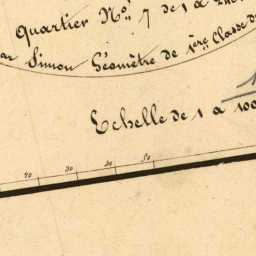 Quartier Nos 7 de 1 à
ar Simon Géomètre de 1ère Classe d
Echelle de 1 à 100
20 30 40 50